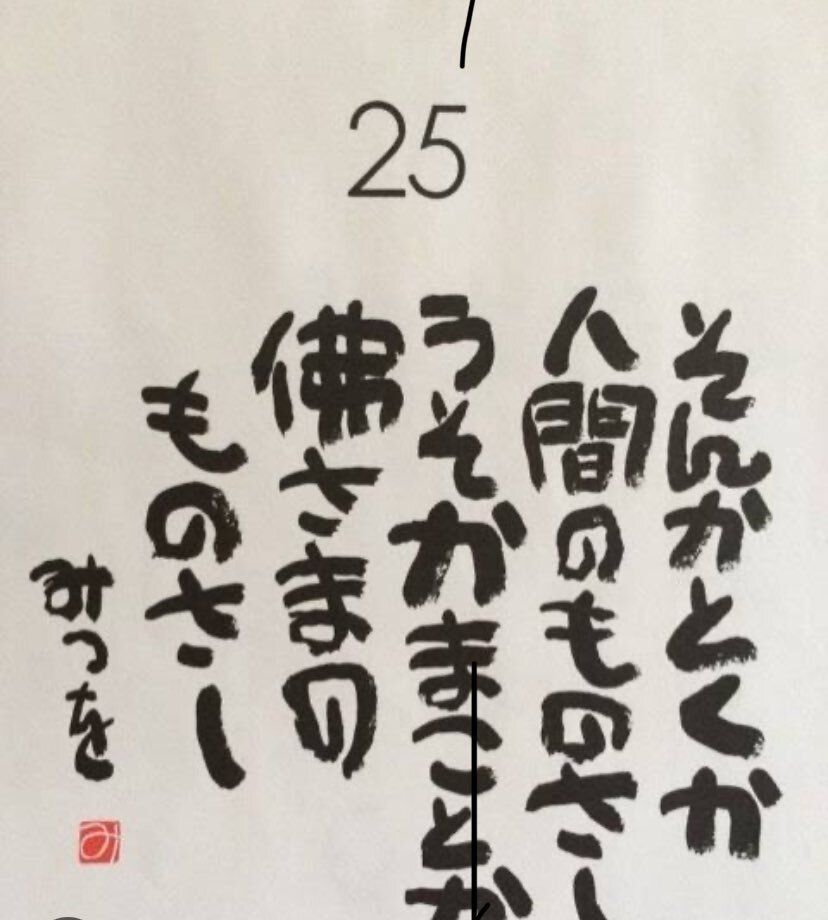 25
そんかとくか
人間のものさし
うそかまことか
佛さまの
ものさし
みつを
み